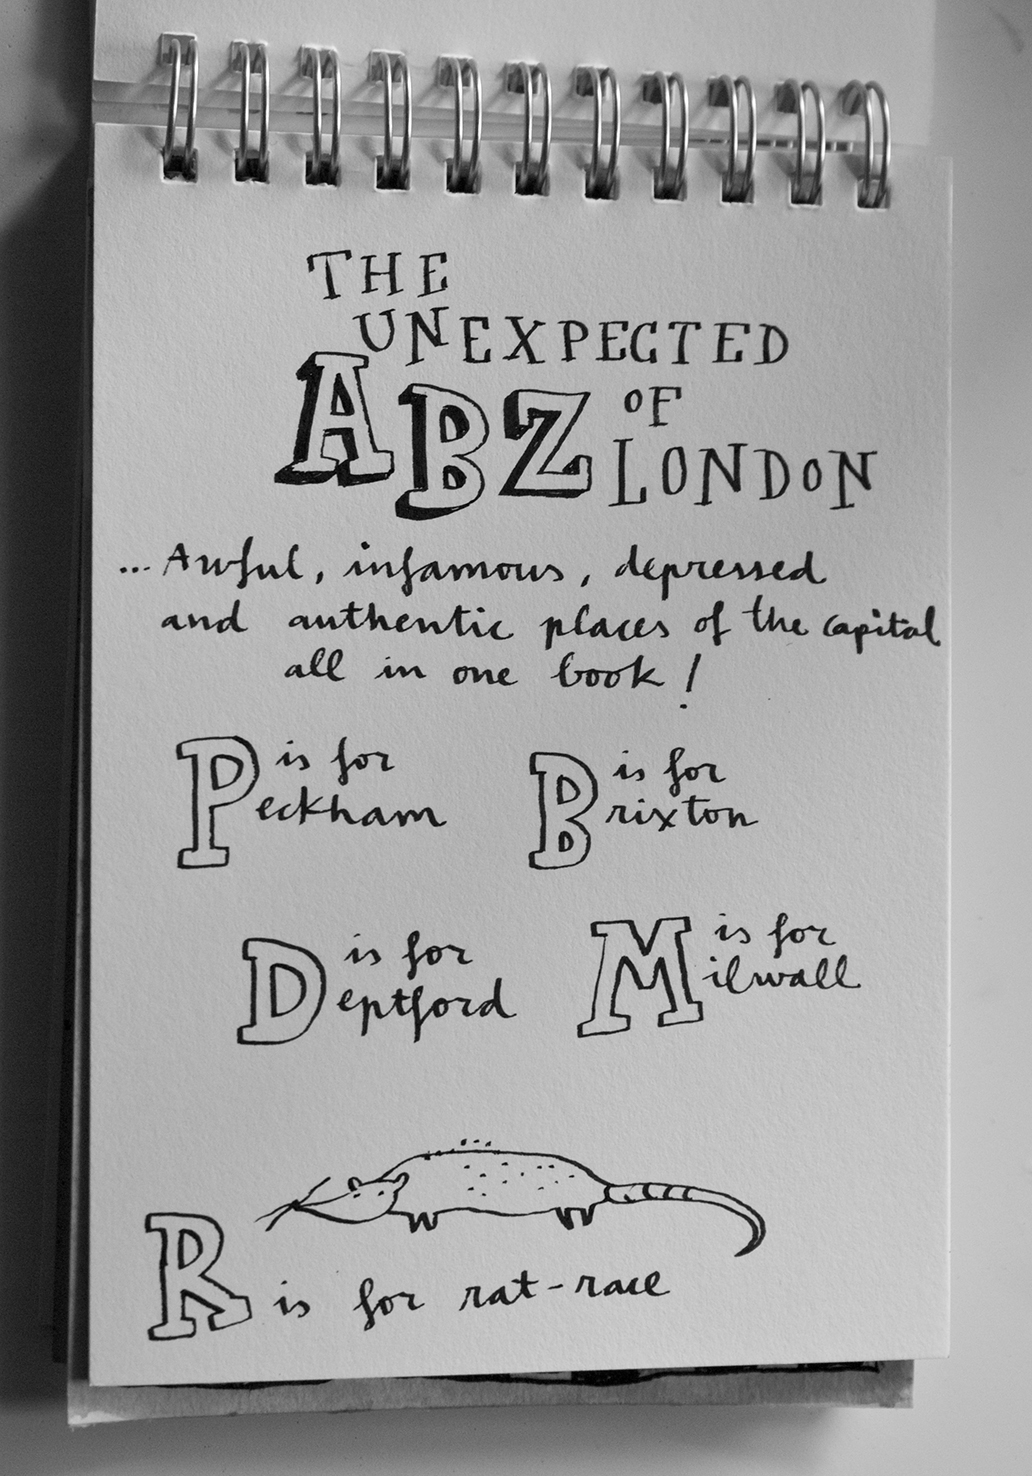 THE
UNEXPECTED
ABZ OF
LONDON
... Awful, infamous, depressed
and authentic places of the capital
all in one book!
P is for
eckham
B is for
rixton
D is for
eptford
M is for
ilwall
R is for rat-race